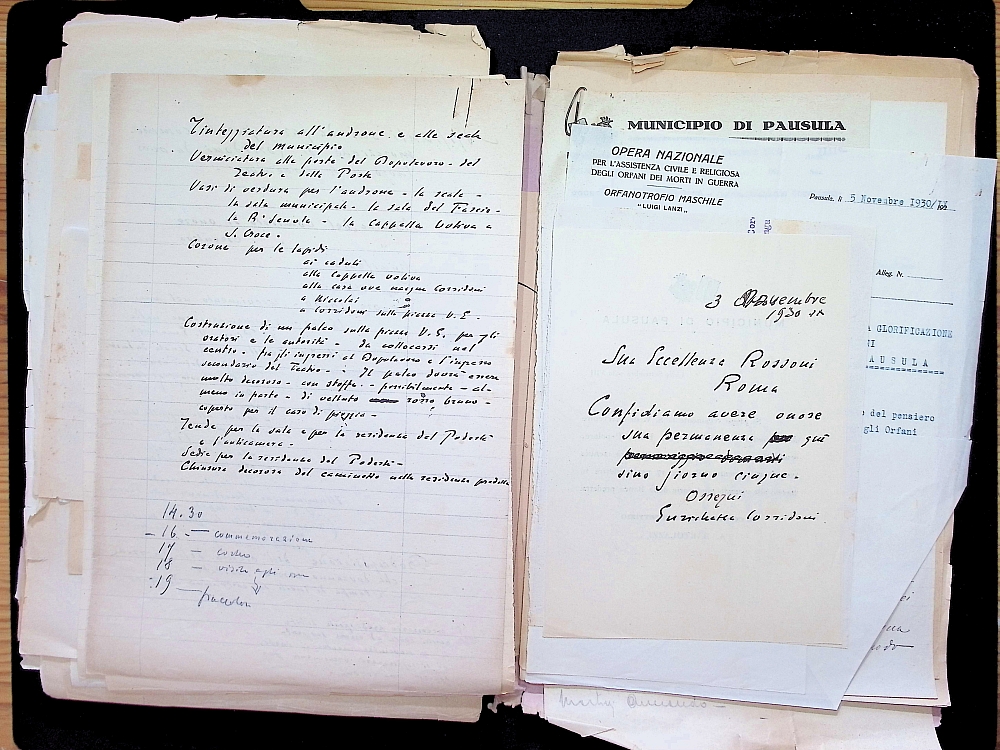 Tinteggiatura all'androne e alle scale
del municipio
Verniciatura alle porte del Dopolavoro - del
Teatro e della Posta
Vasi di verdura per l'androne - le scale -
la sala municipale - la sala del Fascio -
la R. Scuola - la cappella votiva a
S. Croce -
Corone per le lapidi
ai caduti
alla cappella votiva
alla casa ove nacque Corridoni
a Niccolai
a Corridoni sulla piazza V. E. -
Costruzione di un palco sulla piazza V. E. per gli
oratori e le autorità - da collocarsi nel
centro - fra gli ingressi al Dopolavoro e l'ingresso
secondario del Teatro - Il palco dovrà essere
molto decoroso - con stoffa - possibilmente - al-
meno in parte - di velluto rosso bruno -
coperto per il caso di pioggia -
Tende per la sala e per la residenza del Podestà
e l'anticamera -
Sedie per la residenza del Podestà -
Chiusura decorosa del caminetto nella residenza predetta
14.30
- 16 - commemorazione
17 - corteo
18 - visita agli
- 19 -
MUNICIPIO DI PAUSULA
OPERA NAZIONALE
PER L'ASSISTENZA CIVILE E RELIGIOSA
DEGLI ORFANI DEI MORTI IN GUERRA
ORFANOTROFIO MASCHILE
"LUIGI LANZI"
Pausula, li 5 Novembre 1930
Alleg. N.
A GLORIFICAZIONE
NI
AUSULA
del pensiero
gli Orfani
3 Novembre
1930
Sua Eccellenza Rossoni
Roma
Confidiamo avere onore
sua permanenza qui
sino giorno cinque -
Ossequi
Enrichetta Corridoni